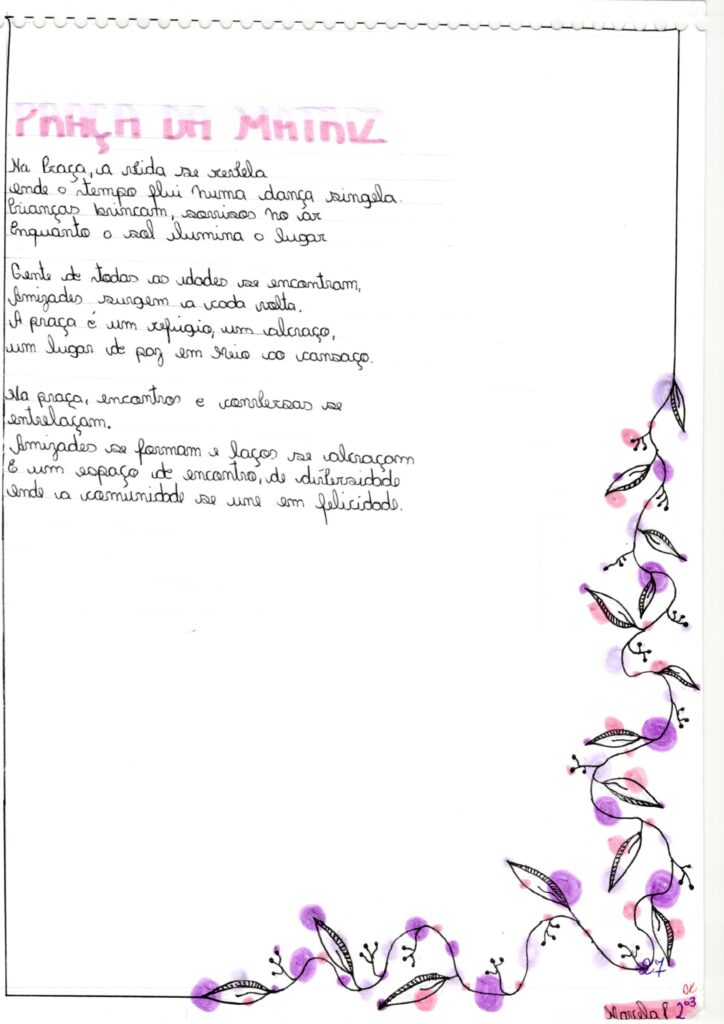 PRAÇA DA MATRIZ
Na Praça, a vida se revela
onde o tempo flui numa dança singela.
Crianças brincam, sorrisos no ar
Enquanto o sol ilumina o lugar
Gente de todas as idades se encontram,
Amizades surgem a cada volta.
A praça é um refúgio, um abraço,
um lugar de paz em meio ao cansaço.
Na praça, encontros e conversas se
entrelaçam.
Amizades se formam e laços se abraçam
É um espaço de encontro, de diversidade
onde a comunidade se une em felicidade.
27
Marcela P. 2º03